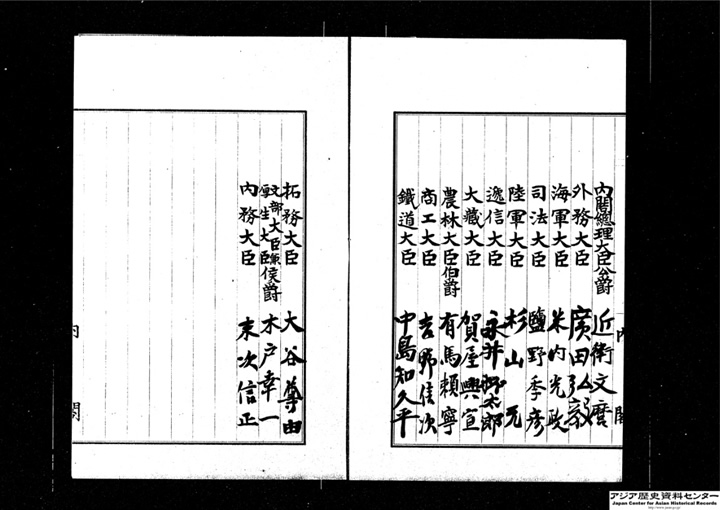 内閣總理大臣公爵 近衛文麿
外務大臣 廣田弘毅
海軍大臣 米内光政
司法大臣 鹽野季彦
陸軍大臣 杉山元
遞信大臣 永井柳太郎
大藏大臣 賀屋興宣
農林大臣伯爵 有馬頼寧
商工大臣 吉野信次
鐵道大臣 中島知久平
内閣
拓務大臣 大谷尊由
文部大臣兼厚生大臣侯爵 木戸幸一
内務大臣 末次信正
内閣
アジア歴史資料センター
Japan Center for Asian Historical Records
http://www.jacar.go.jp/